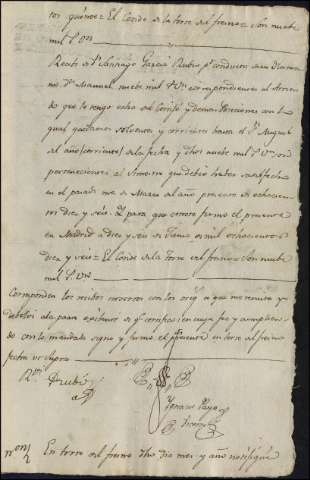 tos quince = El Conde de la torre del fresno = Son nuebe
mil r.s v.on
Recivi de D.n Santiago Garcia Rubio p.r conducto de su Hermano
D.n Manuel, nuebe mil r.s v.on correspondientes al Arren
do que le tengo echo del y demas Posesiones con lo
qual quedamos solventes y corrientes hasta el S.n Miguel
del año corriente de la fecha y dhos nuebe mil r.s v.on son
pertenecientes al que debio haber satisfecho
en el pasado mes de Marzo del año proximo de ochocien
tos diez y seis. Y para que conste firmo el presente
en Madrid a diez y seis de de mil ochocientos
diez y seis = El Conde de la torre del fresno = Son nuebe
mil r.s v.on
Corresponden los recibos insertos con los orig.s a que me remito y
debolvi a la parte de que certifico; en cuya fee y cumplien
do con lo mandado signo y firmo el presente en torre del fresno
fecha ut supra
R.vi Rubio
Ignacio Payo
Not.on En torre del fresno dho dia mes y año notifiqué